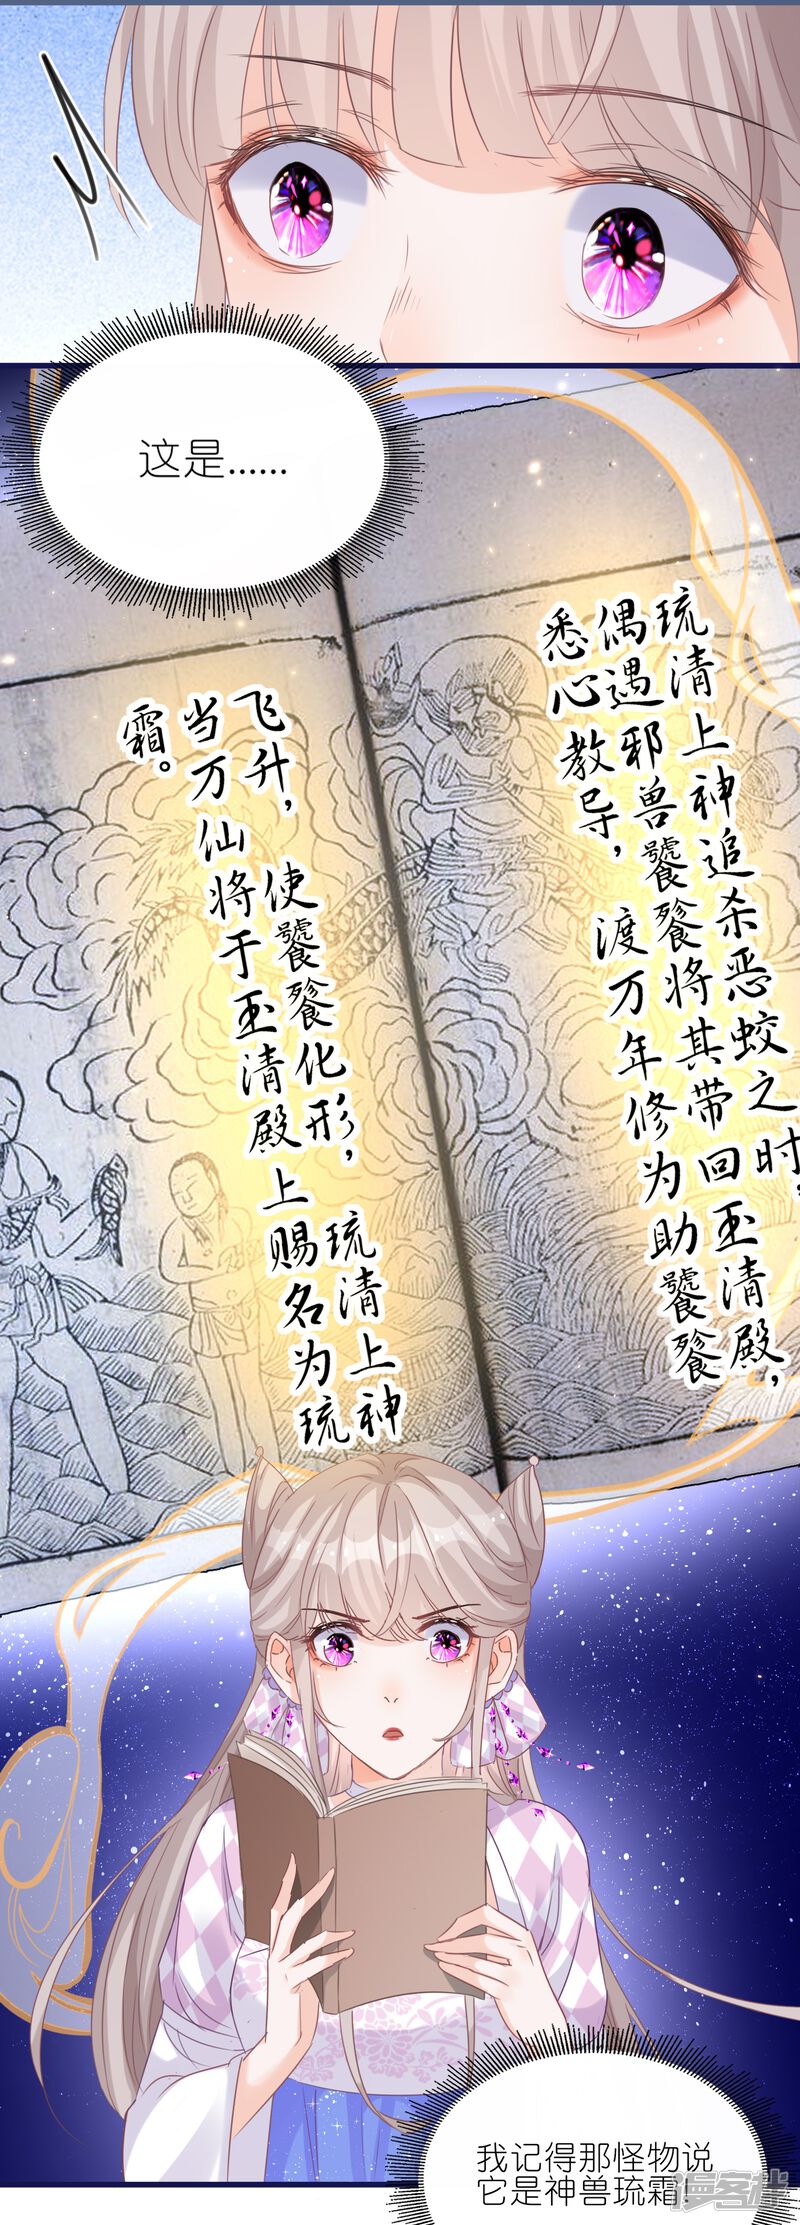 这是……
琉清上神追杀恶蛟之时，
偶遇邪兽饕餮将其带回玉清殿，
悉心教导，渡万年修为助饕餮
飞升，使饕餮化形，琉清上神
当万仙将于玉清殿上赐名为琉
霜。
我记得那怪物说
它是神兽琉霜！
漫客栈